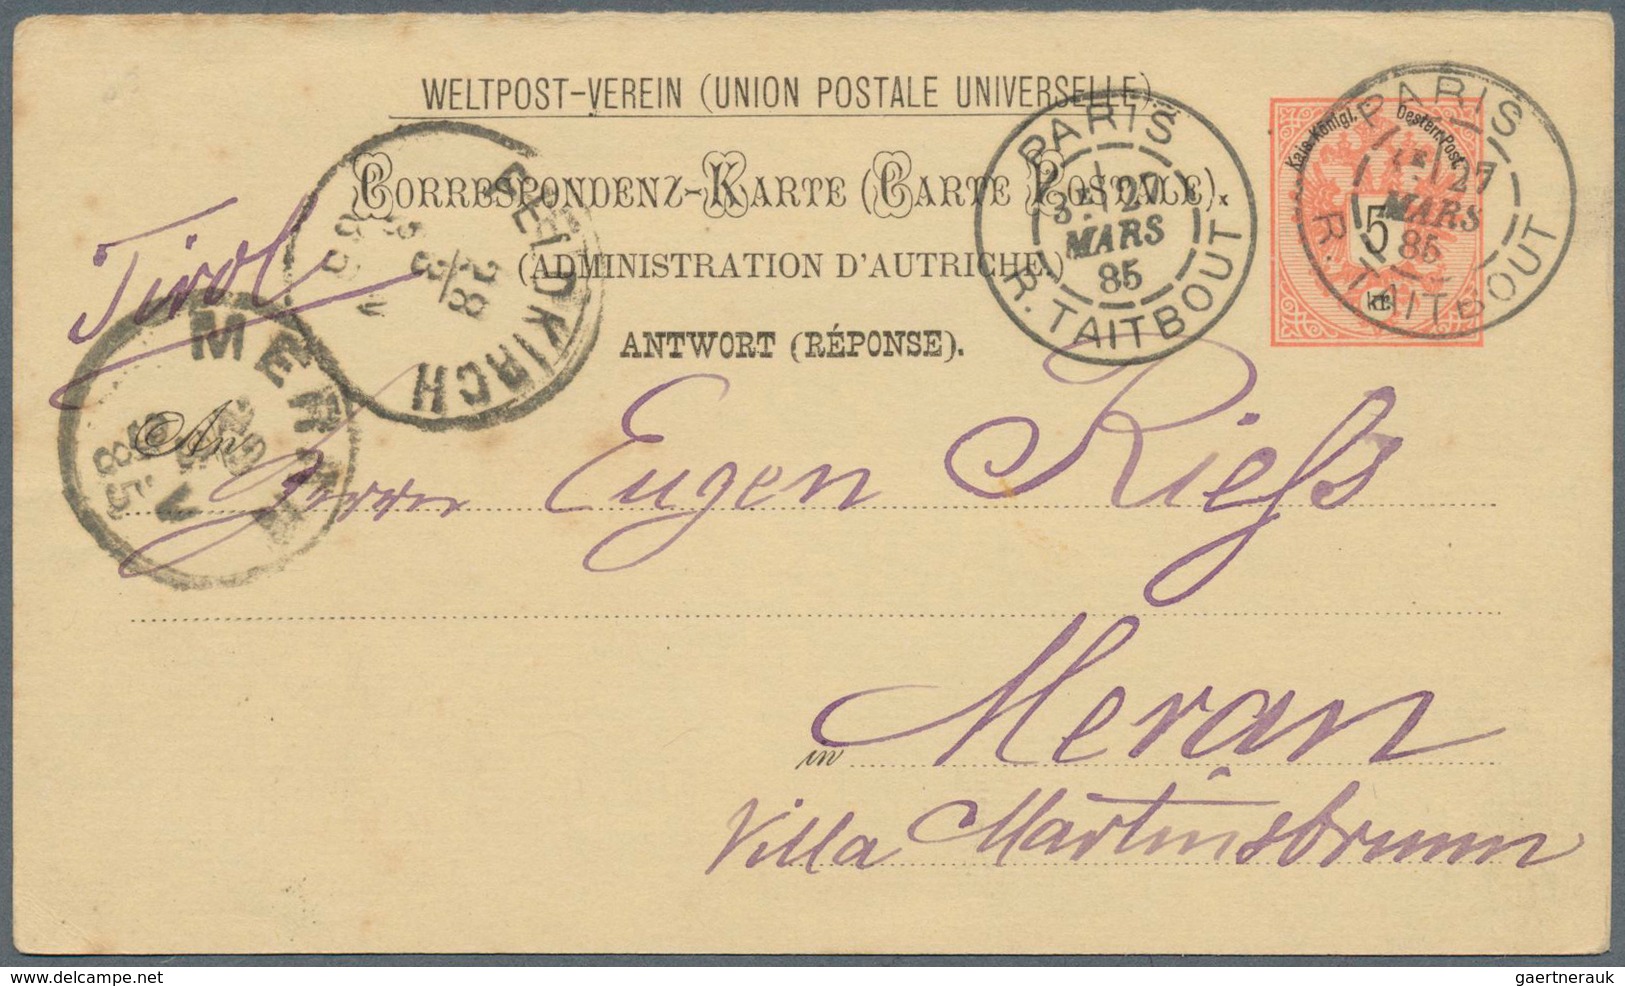 WELTPOST-VEREIN (UNION POSTALE UNIVERSELLE).
CORRESPONDENZ-KARTE (CARTE POSTALE).
(ADMINISTRATION D'AUTRICHE.)
ANTWORT (RÉPONSE).
Kais. Königl. Oestern. Post
5
kr.
PARIS
3E 27
MARS
85
R. TAITBOUT
PARIS
27
MARS
85
R. TAITBOUT
FELDKIRCH
28
3
85
MERAN
85
Tirol
An
Herrn Eugen Rieß
in Meran
Villa Martinsbrunn
delcampe.net
gaertnerauk